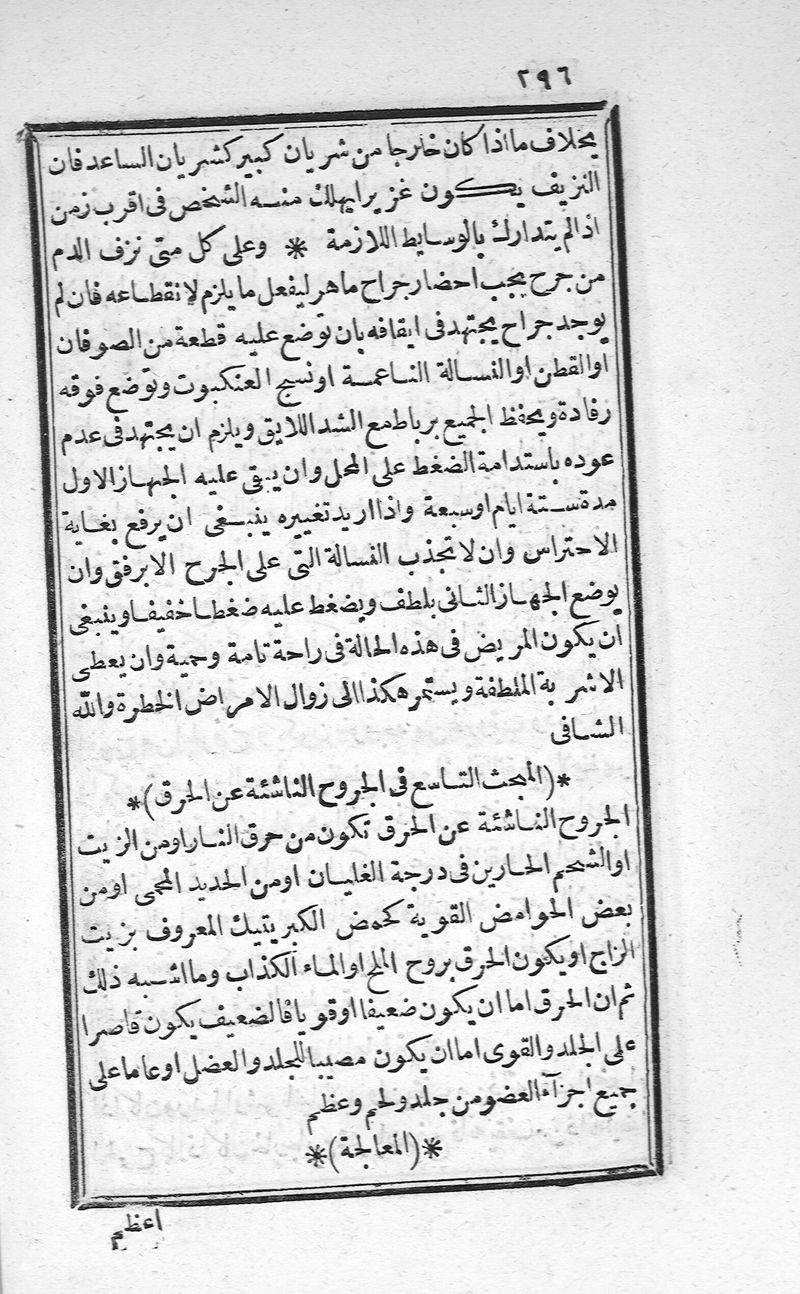 ٢٩٦
بخلاف ما اذا كان خارجا من شريان كبير كشريان الساعد فان
النزيف يكون غزيرا يهلك منه الشخص فى اقرب زمن
اذا لم يتدارك بالوسايط اللازمة * وعلى كل متى نزف الدم
من جرح يجب احضار جراح ماهر ليفعل ما يلزم لانقطاعه فان لم
يوجد جراح يجتهد فى ايقافه بان توضع عليه قطعة من الصوفان
او القطن او النسالة الناعمة او نسج العنكبوت وتوضع فوقه
رفادة ويحفظ الجميع برباط مع الشد اللايق ويلزم ان يجتهد فى عدم
عوده باستدامة الضغط على المحل وان يبقى عليه الجهاز الاول
مدة ستة ايام او سبعة واذا اريد تغييره ينبغى ان يرفع بغاية
الاحتراس وان لا تجذب النسالة التى على الجرح الا برفق وان
يوضع الجهاز الثانى بلطف ويضغط عليه ضغطا خفيفا وينبغى
ان يكون المريض فى هذه الحالة فى راحة تامة وحمية وان يعطى
الاشربة الملطفة ويستمر هكذا الى زوال الامراض الخطرة والله
الشافى
*(المبحث التاسع فى الجروح الناشئة عن الحرق)*
الجروح الناشئة عن الحرق تكون من حرق النار او من الزيت
او الشحم الحارين فى درجة الغليان او من الحديد المحمى او من
بعض الحوامض القوية كحمض الكبريتيك المعروف بزيت
الزاج او يكون الحرق بروح الملح او الماء الكذاب وما اشبه ذلك
ثم ان الحرق اما ان يكون ضعيفا او قويا فالضعيف يكون قاصرا
على الجلد والقوى اما ان يكون مصيبا للجلد والعضل او عاما على
جميع اجزآء العضو من جلد ولحم وعظم
*(المعالجة)*
اعظم